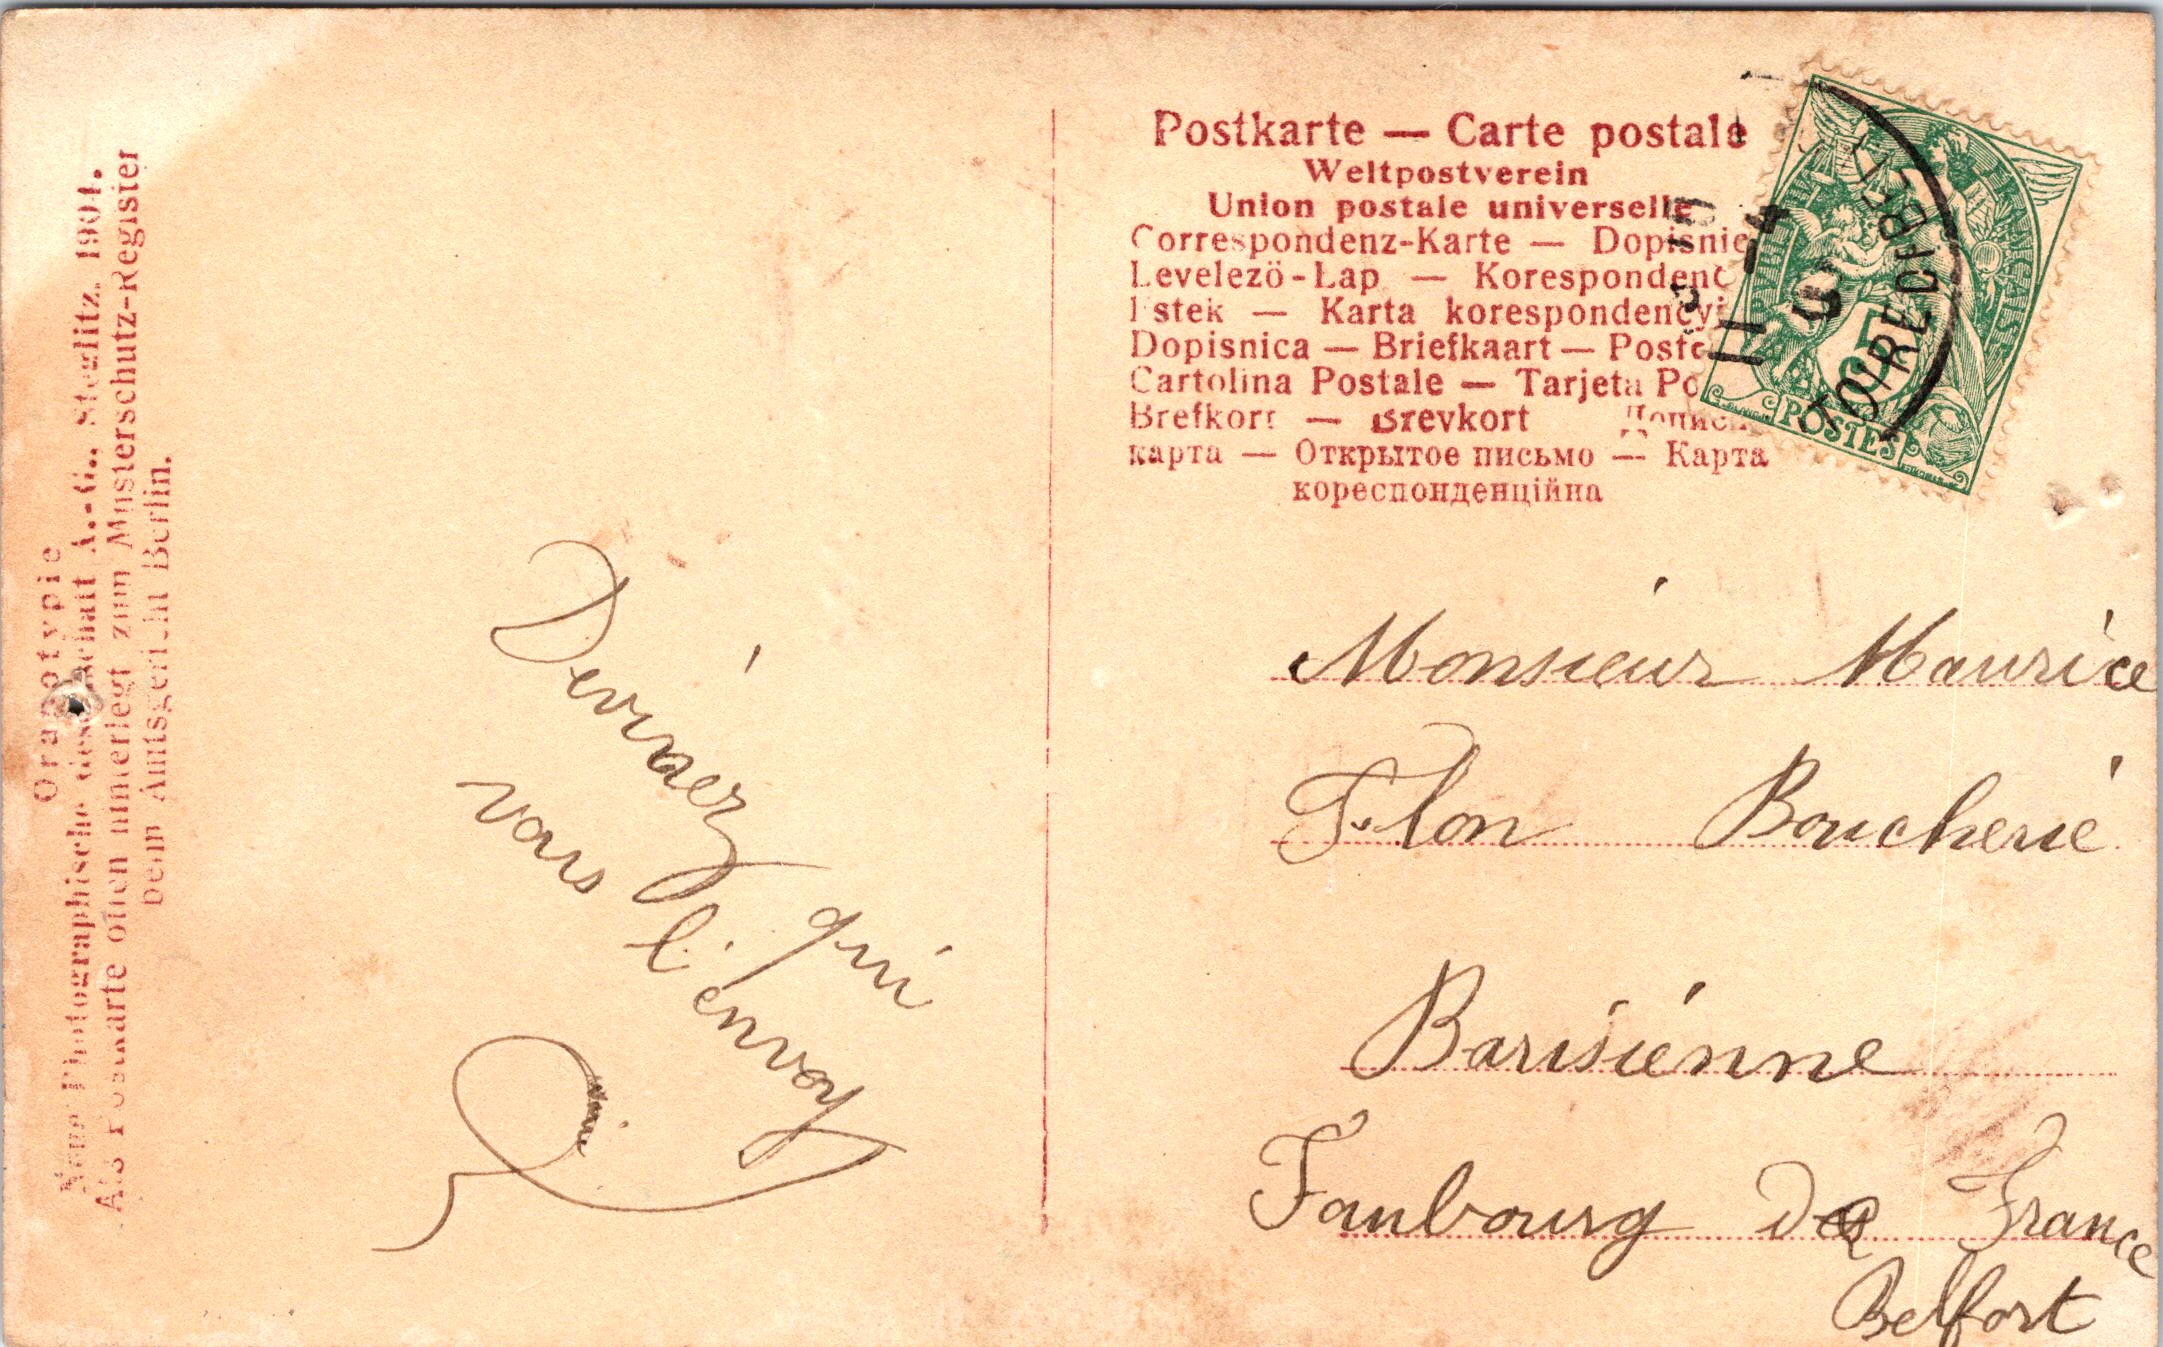 Orapotypie
Neue Photographische Gesellschaft A.-G., Steglitz. 1904.
Als Postkarte offen hinterlegt zum Musterschutz-Register
beim Amtsgericht Berlin.
Devinéz qui
vous l'envoy
Postkarte — Carte postale
Weltpostverein
Union postale universelle
Correspondenz-Karte — Dopisnie
Levelezö-Lap — Korespondenc
Listek — Karta korespondencyj
Dopisnica — Briefkaart — Postc
Cartolina Postale — Tarjeta Po
Brefkort — Brevkort
карта — Открытое письмо — Карта
кореспонденційна
5
POSTES
TOIRE DE BELF
11 - 4
Monsieur Maurice
Flon Boucherie
Barisiénne
Faubourg de France
Belfort